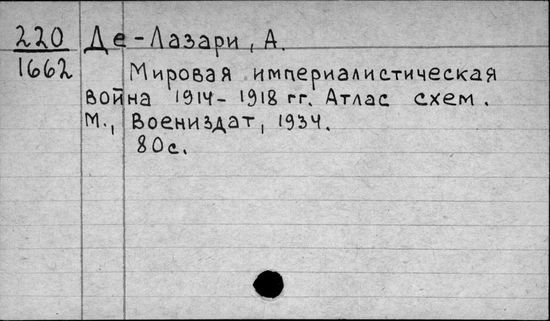 220 Де-Лазари, А.
1662
Мировая империалистическая
война 1914-1918 гг. Атлас схем.
М., Воениздат, 1934.
80с.